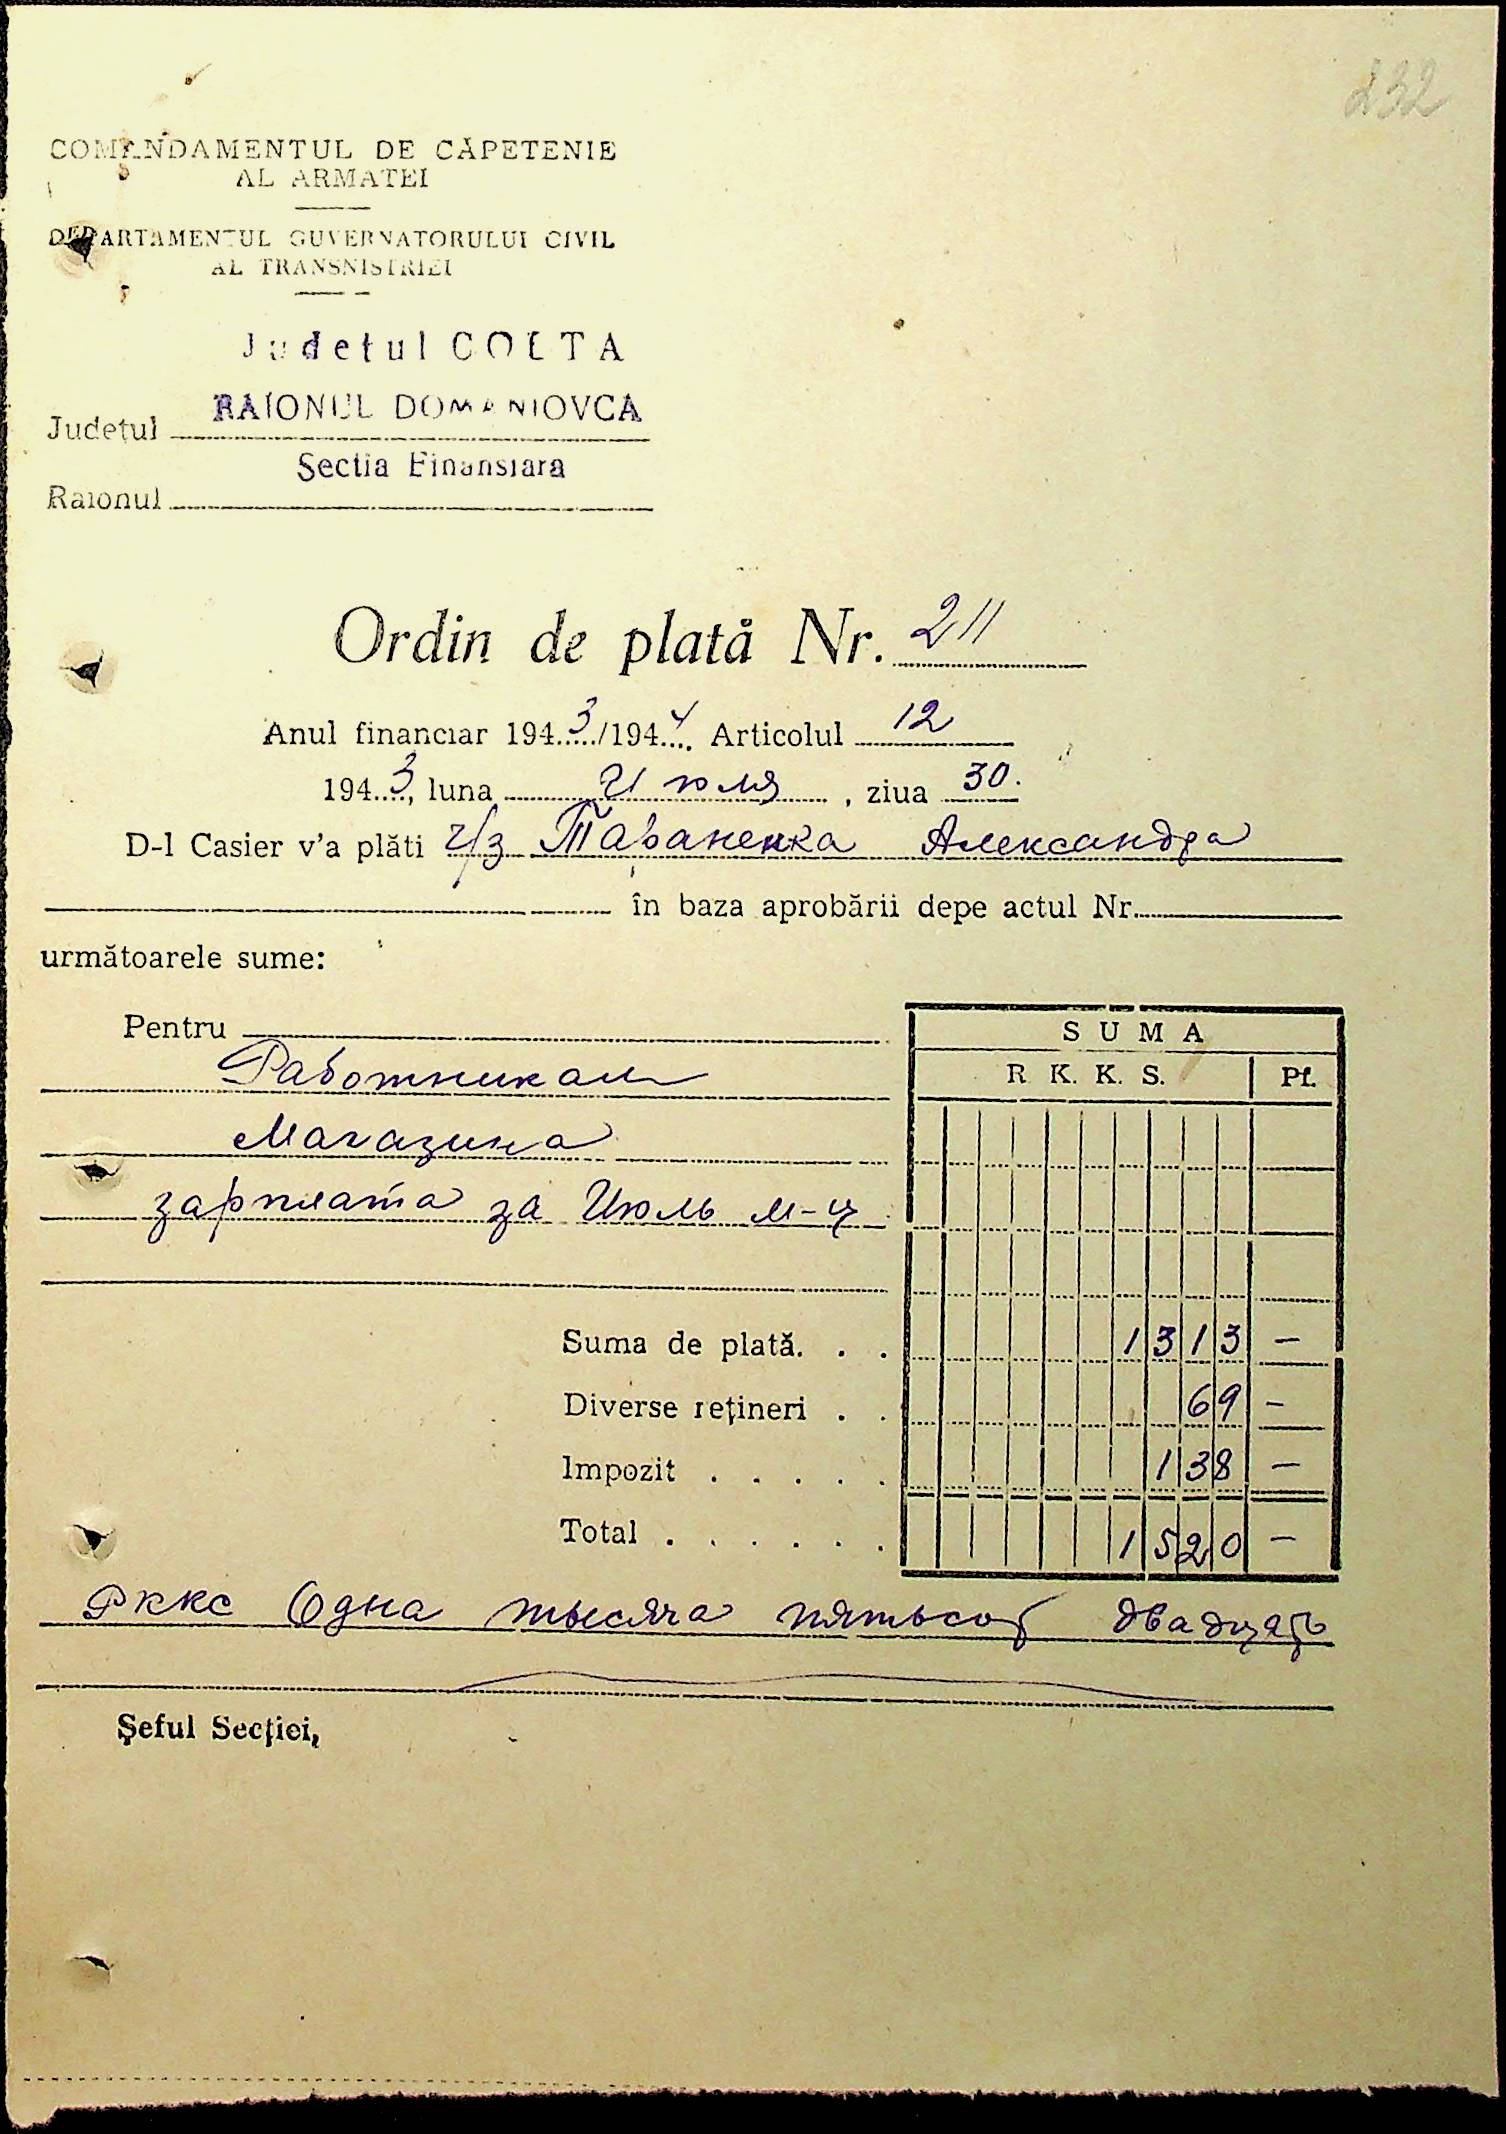 232
COMANDAMENTUL DE CĂPETENIE
AL ARMATEI
DEPARTAMENTUL GUVERNATORULUI CIVIL
AL TRANSNISTRIEI
Judetul COLTA
RAIONUL DOMANIOVCA
Judeţul
Sectia Finansiara
Raionul
Ordin de plată Nr. 211
Anul financiar 1943/1944 Articolul 12
1943, luna Июля, ziua 30.
D-l Casier v'a plăti ч/з Тараненка Александра
în baza aprobării depe actul Nr.
următoarele sume:
Pentru
Работникам
Магазина
зарплата за Июль м-ц
SUMA
R K. K. S. Pf.
Suma de plată. . . 1313 —
Diverse reţineri . . 69 —
Impozit . . . . . 138 —
Total . . . . . . 1520 —
Рккс Одна тысяча пятьсот двадцать
Şeful Secţiei,